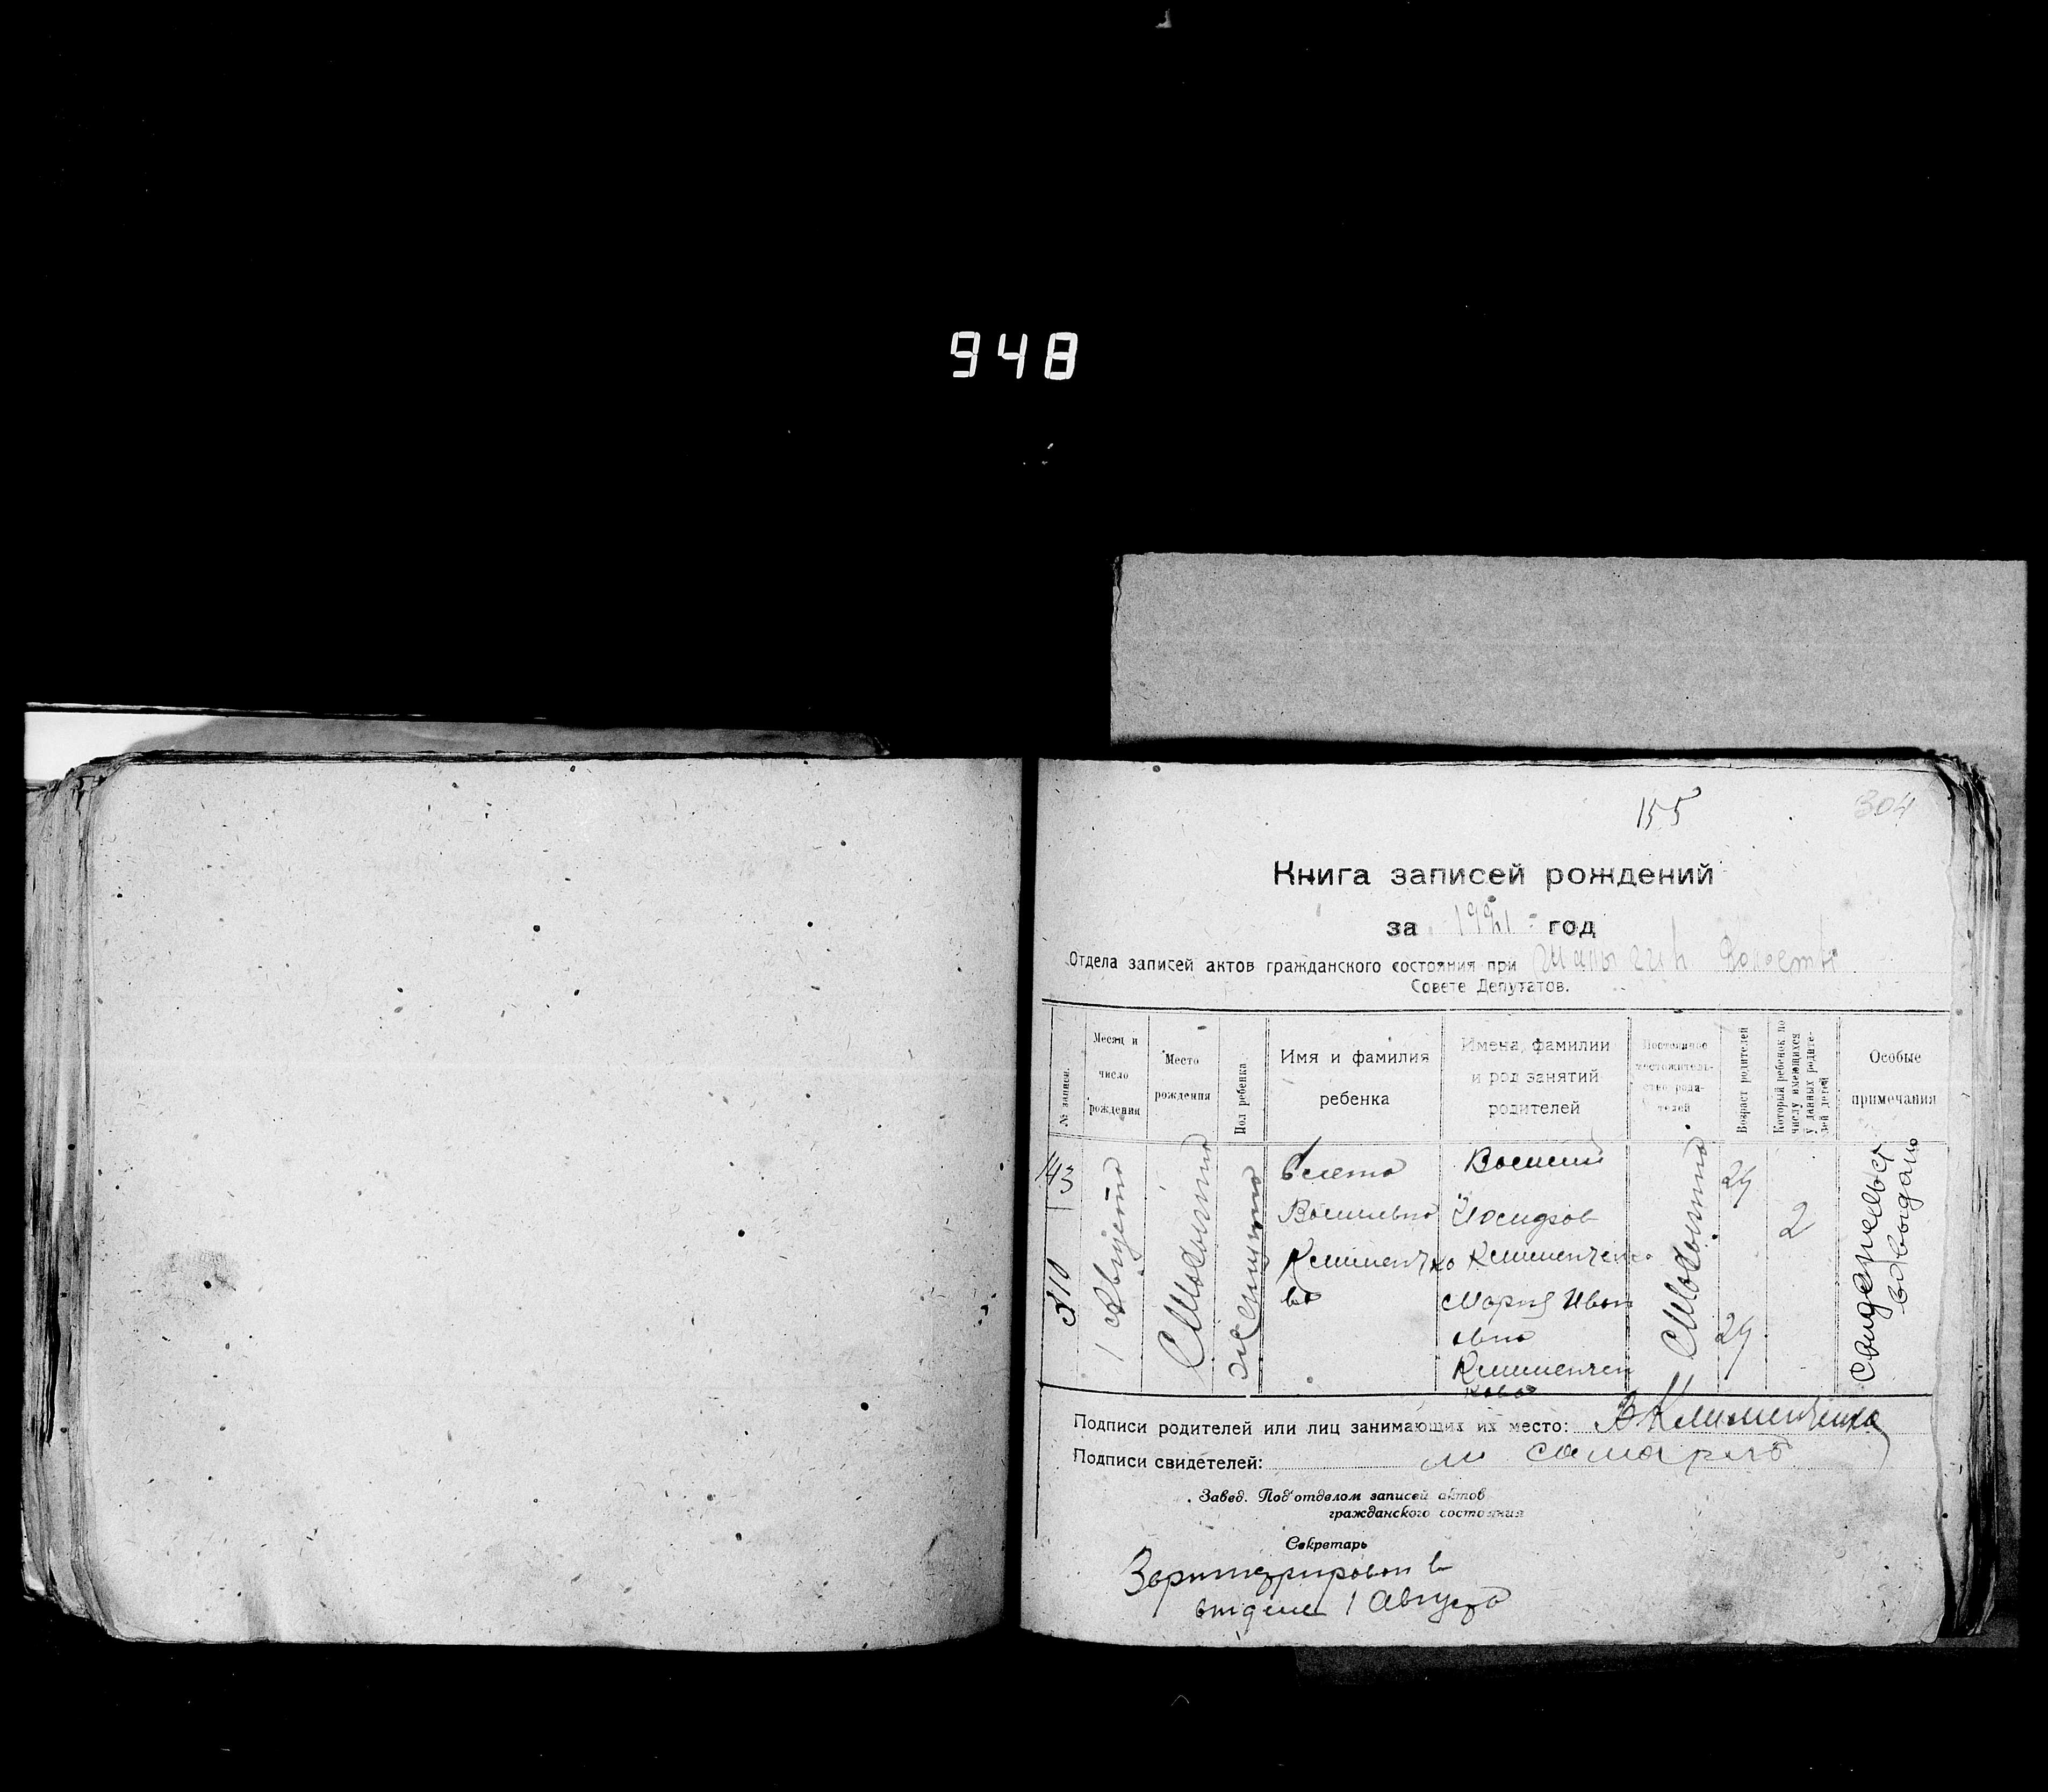 948
155
304
Книга записей рождений
за 1921 год
Отдела записей актов гражданского состояния при
Совете Депутатов.
№ записи.
Месяц и число рождения
Место рождения
Пол ребенка
Имя и фамилия ребенка
Имена, фамилии и род занятий родителей
Постоянное местожительство родителей
Возраст родителей
Который ребенок по числу имеющихся у данных родителей детей
Особые примечания
143
310
1 Августа
женщина
Клименчко
ва
Иосифов
Клименченко
Мария Иван
овна
Клименчен
кова
24
24
2
Свидетельст
во выдано
Подписи родителей или лиц занимающих их место: В Клименченко
Подписи свидетелей:
Завед. Под'отделом записей актов
гражданского состояния
Секретарь
в
отделе 1 Августа